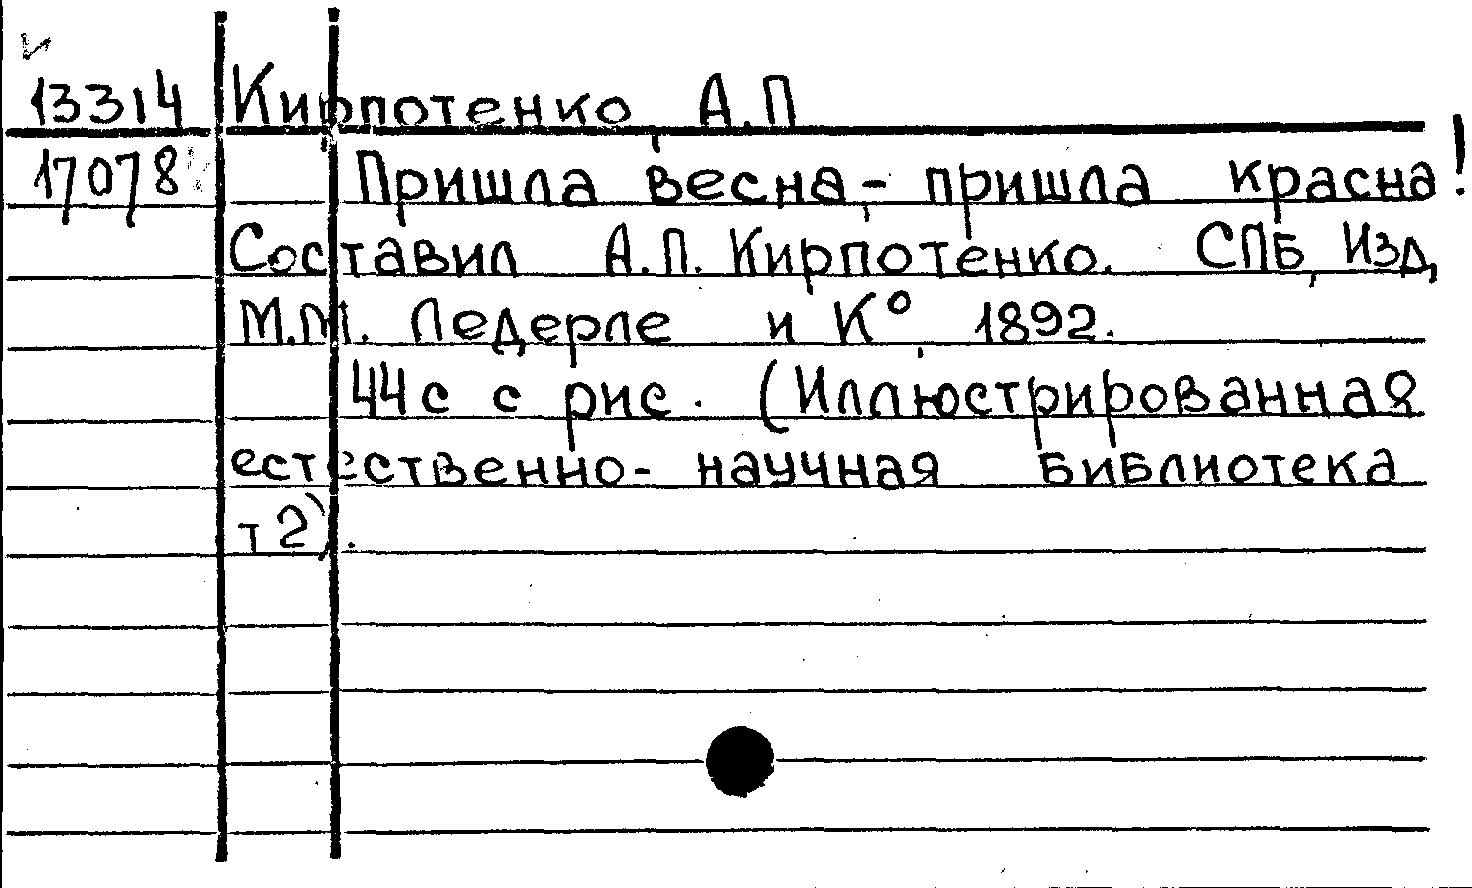 13314 Кирпотенко, А.П
17078 Пришла весна,- пришла красна!
Составил А.П. Кирпотенко. СПБ, Изд,
М.М. Ледерле и К°, 1892.
44с с рис. (Иллюстрированная
естественно- научная библиотека
т2).